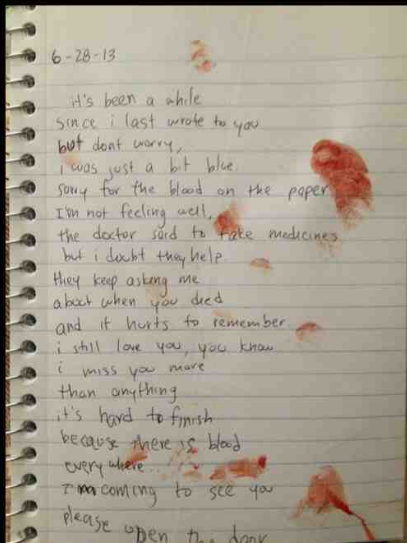 6-28-13
it's been a while
since i last wrote to you
but dont worry,
i was just a bit blue.
sorry for the blood on the paper
I'm not feeling well,
the doctor said to take medicines
but i doubt they help.
they keep asking me
about when you died
and it hurts to remember
i still love you, you know
i miss you more
than anything
it's hard to finish
because there is blood
everywhere...
I'm coming to see you
please open the door